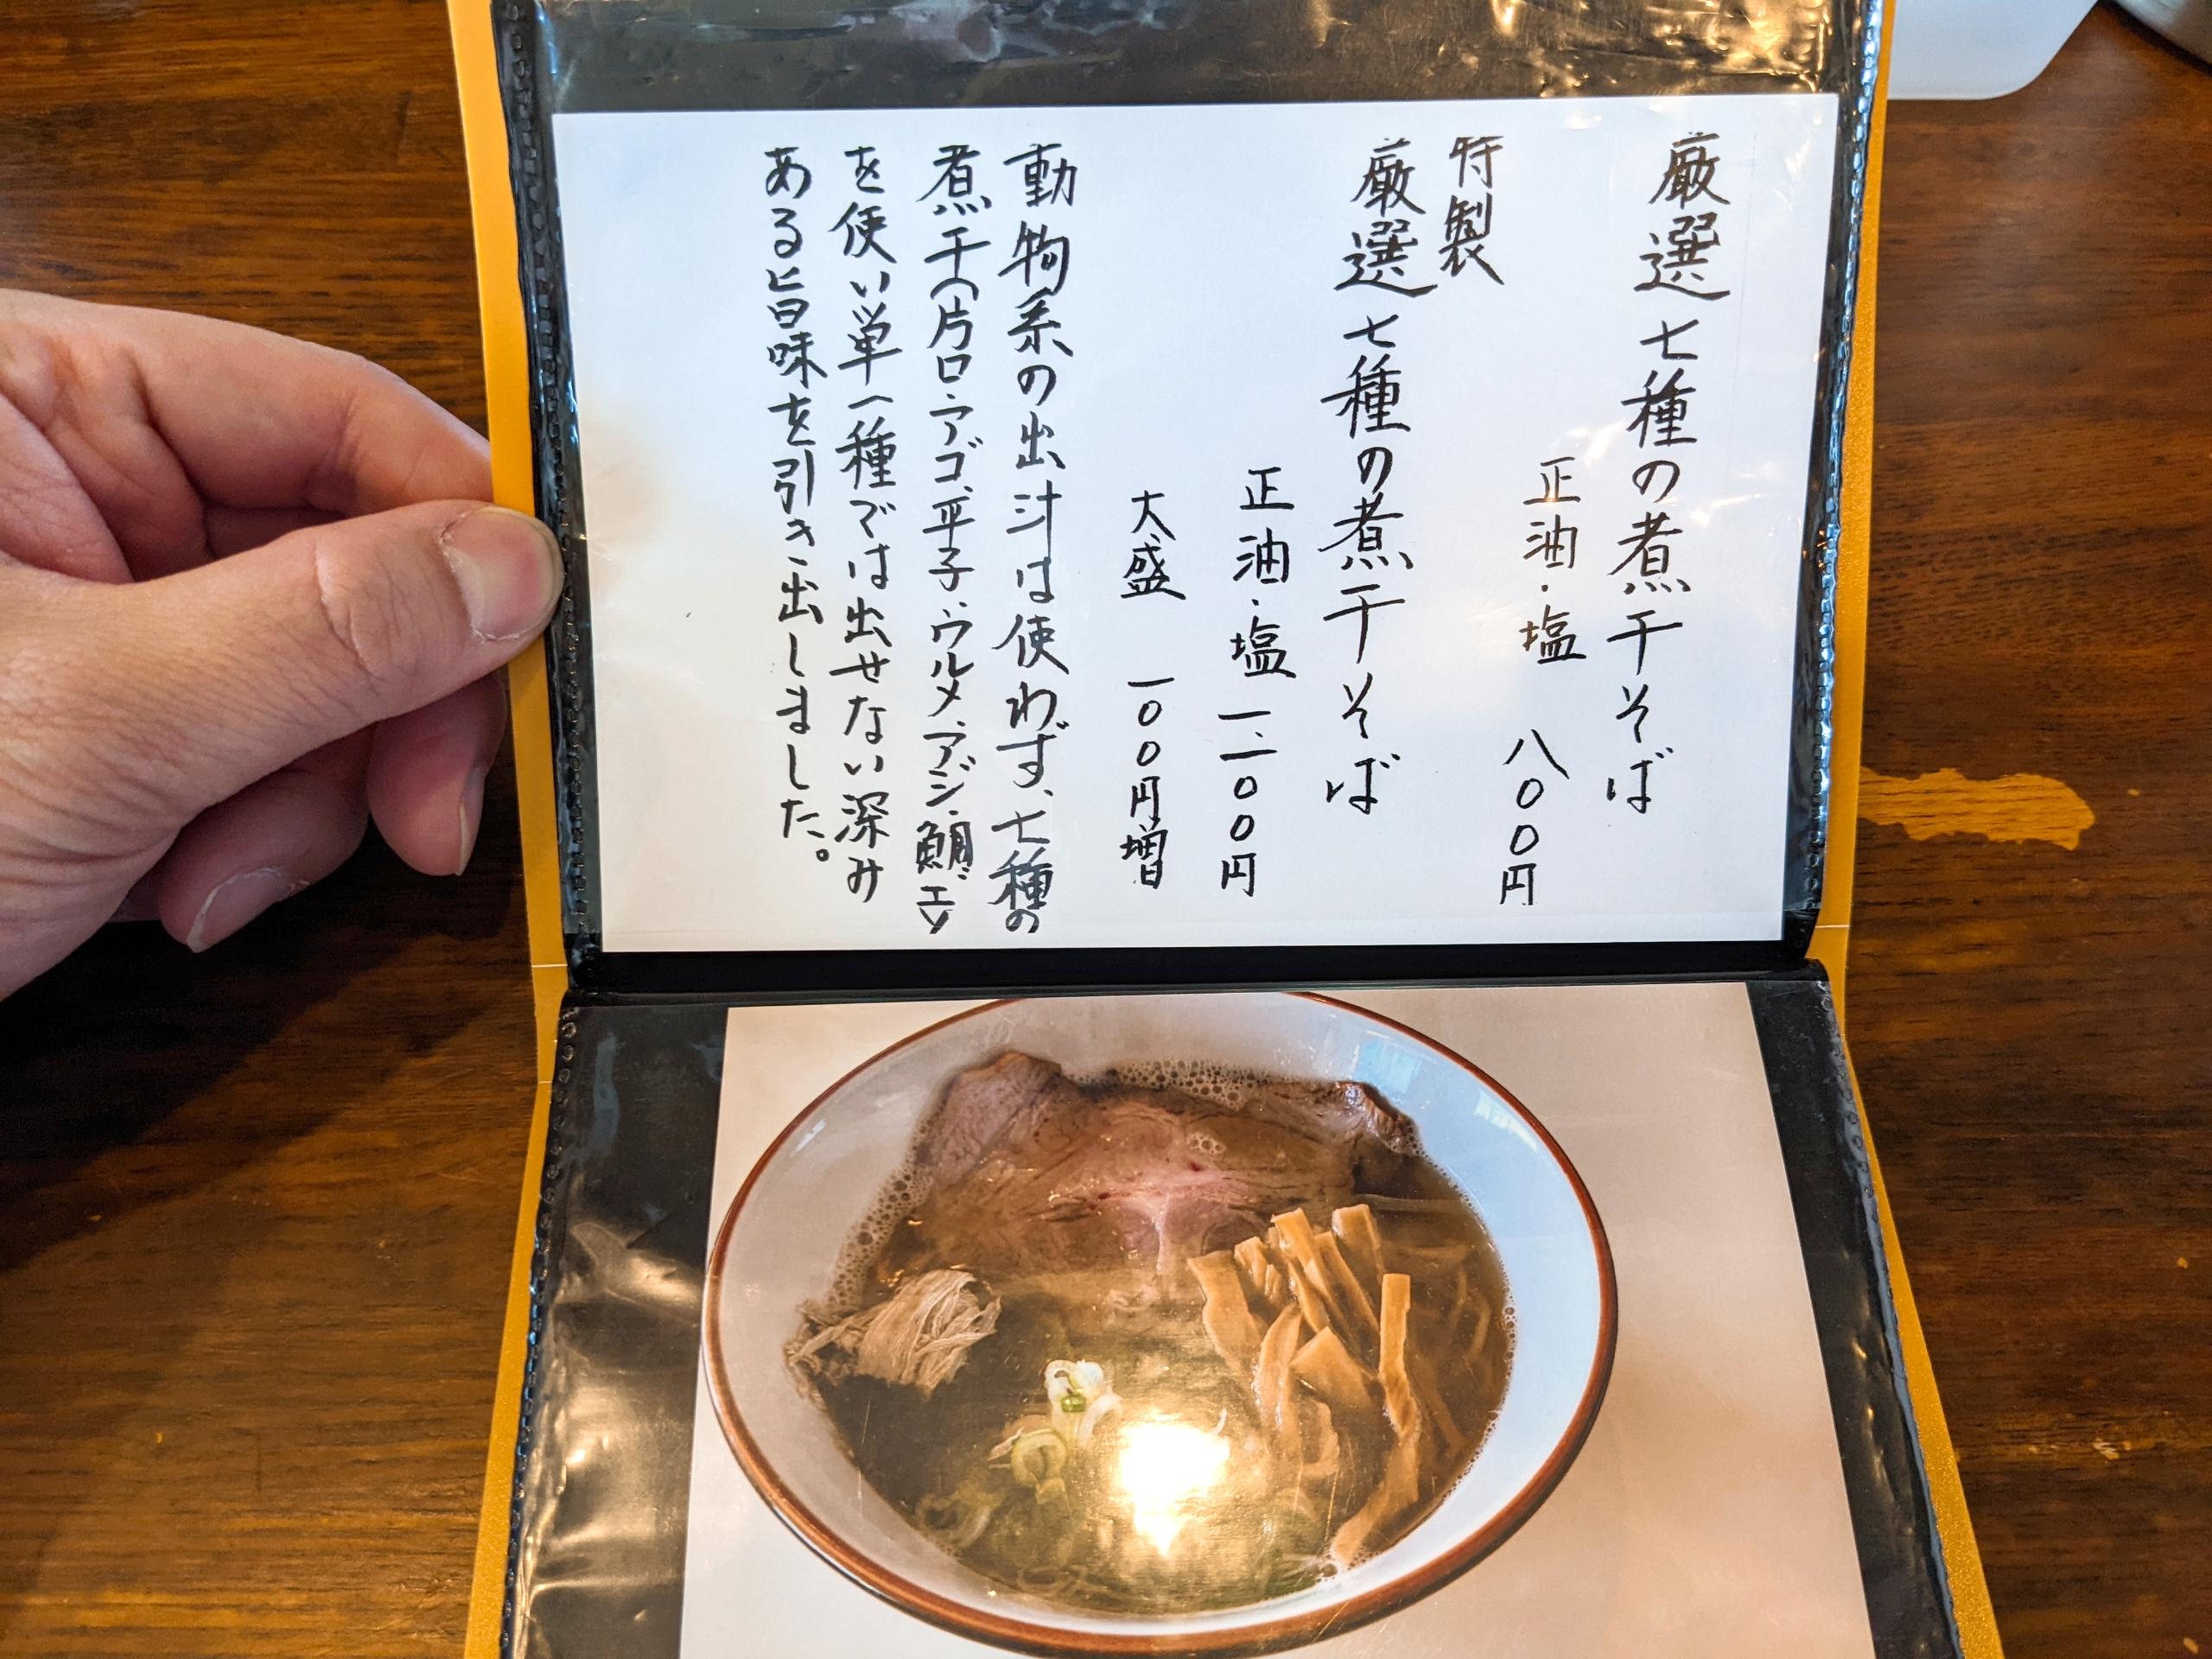 厳選七種の煮干そば
正油・塩 八〇〇円
特製
厳選七種の煮干そば
正油・塩 一、二〇〇円
大盛 一〇〇円増
動物系の出汁は使わず、七種の
煮干(片口・アゴ、平子、ウルメ、アジ、鯛、エビ
を使い単一種では出せない深み
ある旨味を引き出しました。